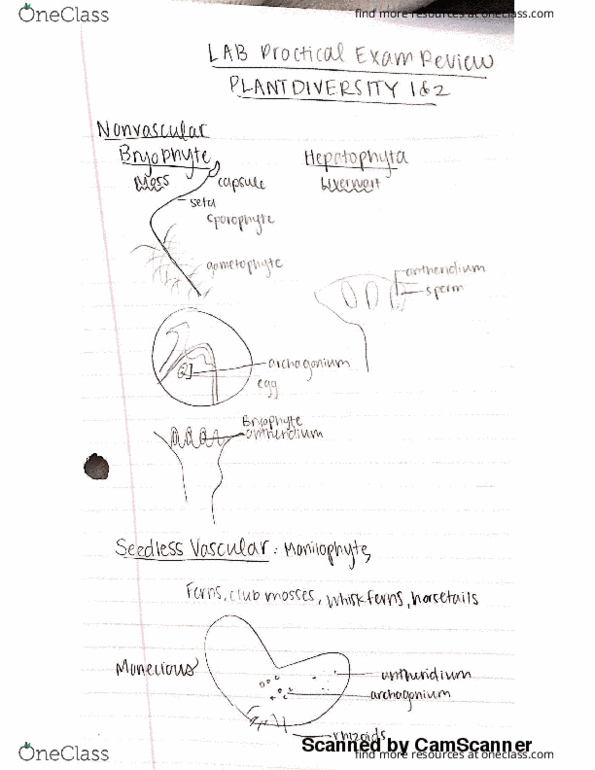 OneClass
find more resources at oneclass.com
LAB Practical Exam Review
PLANT DIVERSITY 1&2
Nonvascular
Bryophyte
Hepatophyta
Moss
capsule
Liverwort
seta
sporophyte
gametophyte
antheridium
sperm
archagonium
egg
Bryophyte
antheridium
Seedless Vascular: Monilophyte,
Ferns, club mosses, whisk ferns, horsetails
Monecious
antheridium
archagonium
rhizoids
Scanned by CamScanner
OneClass
find more resources at oneclass.com